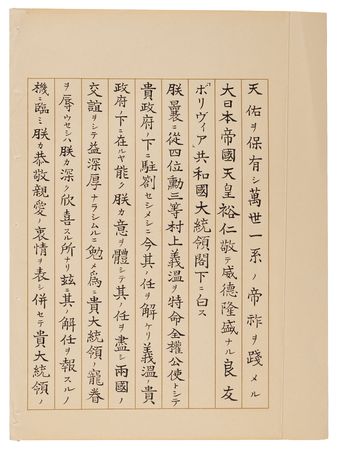 天佑ヲ保有シ萬世一系ノ帝祚ヲ踐メル
大日本帝國天皇裕仁敬テ威德隆盛ナル良友
「ボリヴィア」共和國大統領閣下ニ白ス
朕曩ニ從四位勳三等村上義温ヲ特命全權公使トシテ
貴政府ノ下ニ駐劄セシメシニ今其ノ任ヲ解ケリ義温ノ貴
政府ノ下ニ在ルヤ能ク朕カ意ヲ體シテ其ノ任ヲ盡シ兩國ノ
交誼ヲシテ益深厚ナラシムルニ勉メ爲ニ貴大統領ノ寵眷
ヲ辱ウセシハ朕カ深ク欣喜スル所ナリ玆ニ其ノ解任ヲ報スルノ
機ニ臨ミ朕カ恭敬親愛ノ衷情ヲ表シ併セテ貴大統領ノ